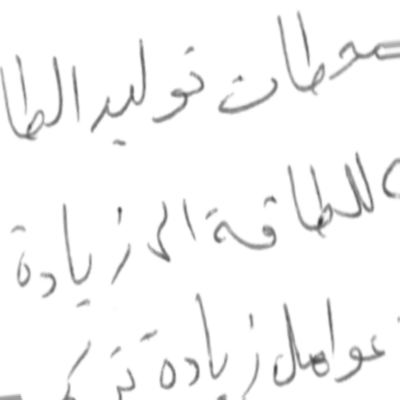 محطات توليد الطا
للطاقة الى زيادة
عوامل زيادة تر